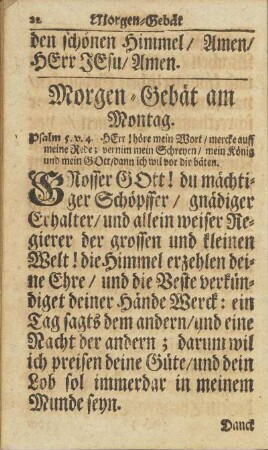 22 Morgen-Gebät
den schönen Himmel / Amen /
HErr JEsu / Amen.
Morgen-Gebät am
Montag.
Psalm 5. v. 4. HErr! höre mein Wort / mercke auff
meine Rede; vernim mein Schreyen / mein König
und mein GOtt / dann ich wil vor dir bäten.
GRosser GOtt! du mächti-
ger Schöpffer / gnädiger
Erhalter / und allein weiser Re-
gierer der grossen und kleinen
Welt! die Himmel erzehlen dei-
ne Ehre / und die Veste verkün-
diget deiner Hände Werck: ein
Tag sagts dem andern / und eine
Nacht der andern; darum wil
ich preisen deine Güte / und dein
Lob sol immerdar in meinem
Munde seyn.
Danck